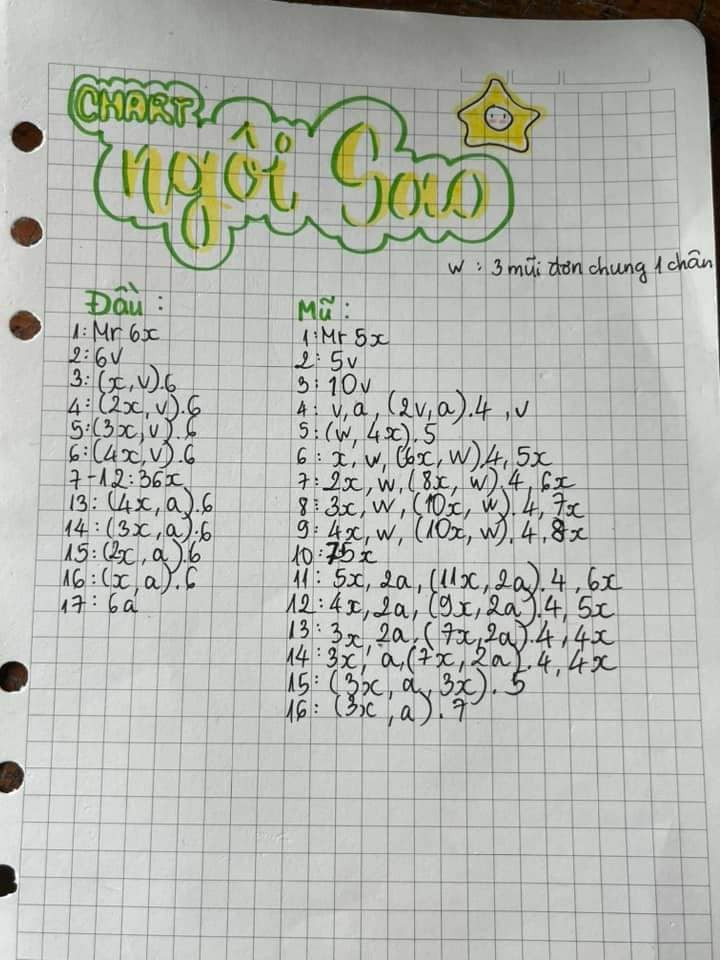 CHART
ngôi Sao
w : 3 mũi đơn chung 1 chân
Đầu :
1: Mr 6x
2: 6v
3: (x, v).6
4: (2x, v).6
5: (3x, v).6
6: (4x, v).6
7-12: 36x
13: (4x, a).6
14: (3x, a).6
15: (2x, a).6
16: (x, a).6
17: 6a
Mũ :
1: Mr 5x
2: 5v
3: 10v
4: v, a, (2v, a).4, v
5: (w, 4x).5
6: x, w, (6x, w).4, 5x
7: 2x, w, (8x, w).4, 6x
8: 3x, w, (10x, w).4, 7x
9: 4x, w, (10x, w).4, 8x
10: 75x
11: 5x, 2a, (11x, 2a).4, 6x
12: 4x, 2a, (9x, 2a).4, 5x
13: 3x, 2a, (7x, 2a).4, 4x
14: 3x, a, (7x, 2a).4, 4x
15: (3x, a, 3x).5
16: (3x, a).7